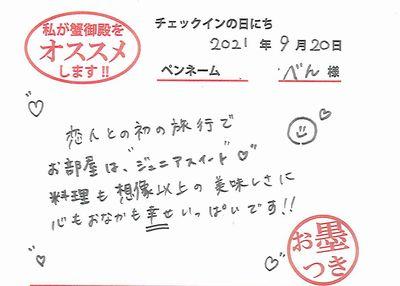 私が蟹御殿を
オススメ
します!!
チェックインの日にち
2021 年 9 月 20日
ペンネーム べん 様
恋人との初の旅行で
お部屋は、"ジュニアスイート"♡
料理も想像以上の美味しさに
心もおなかも幸せいっぱいです!!
お墨
つき